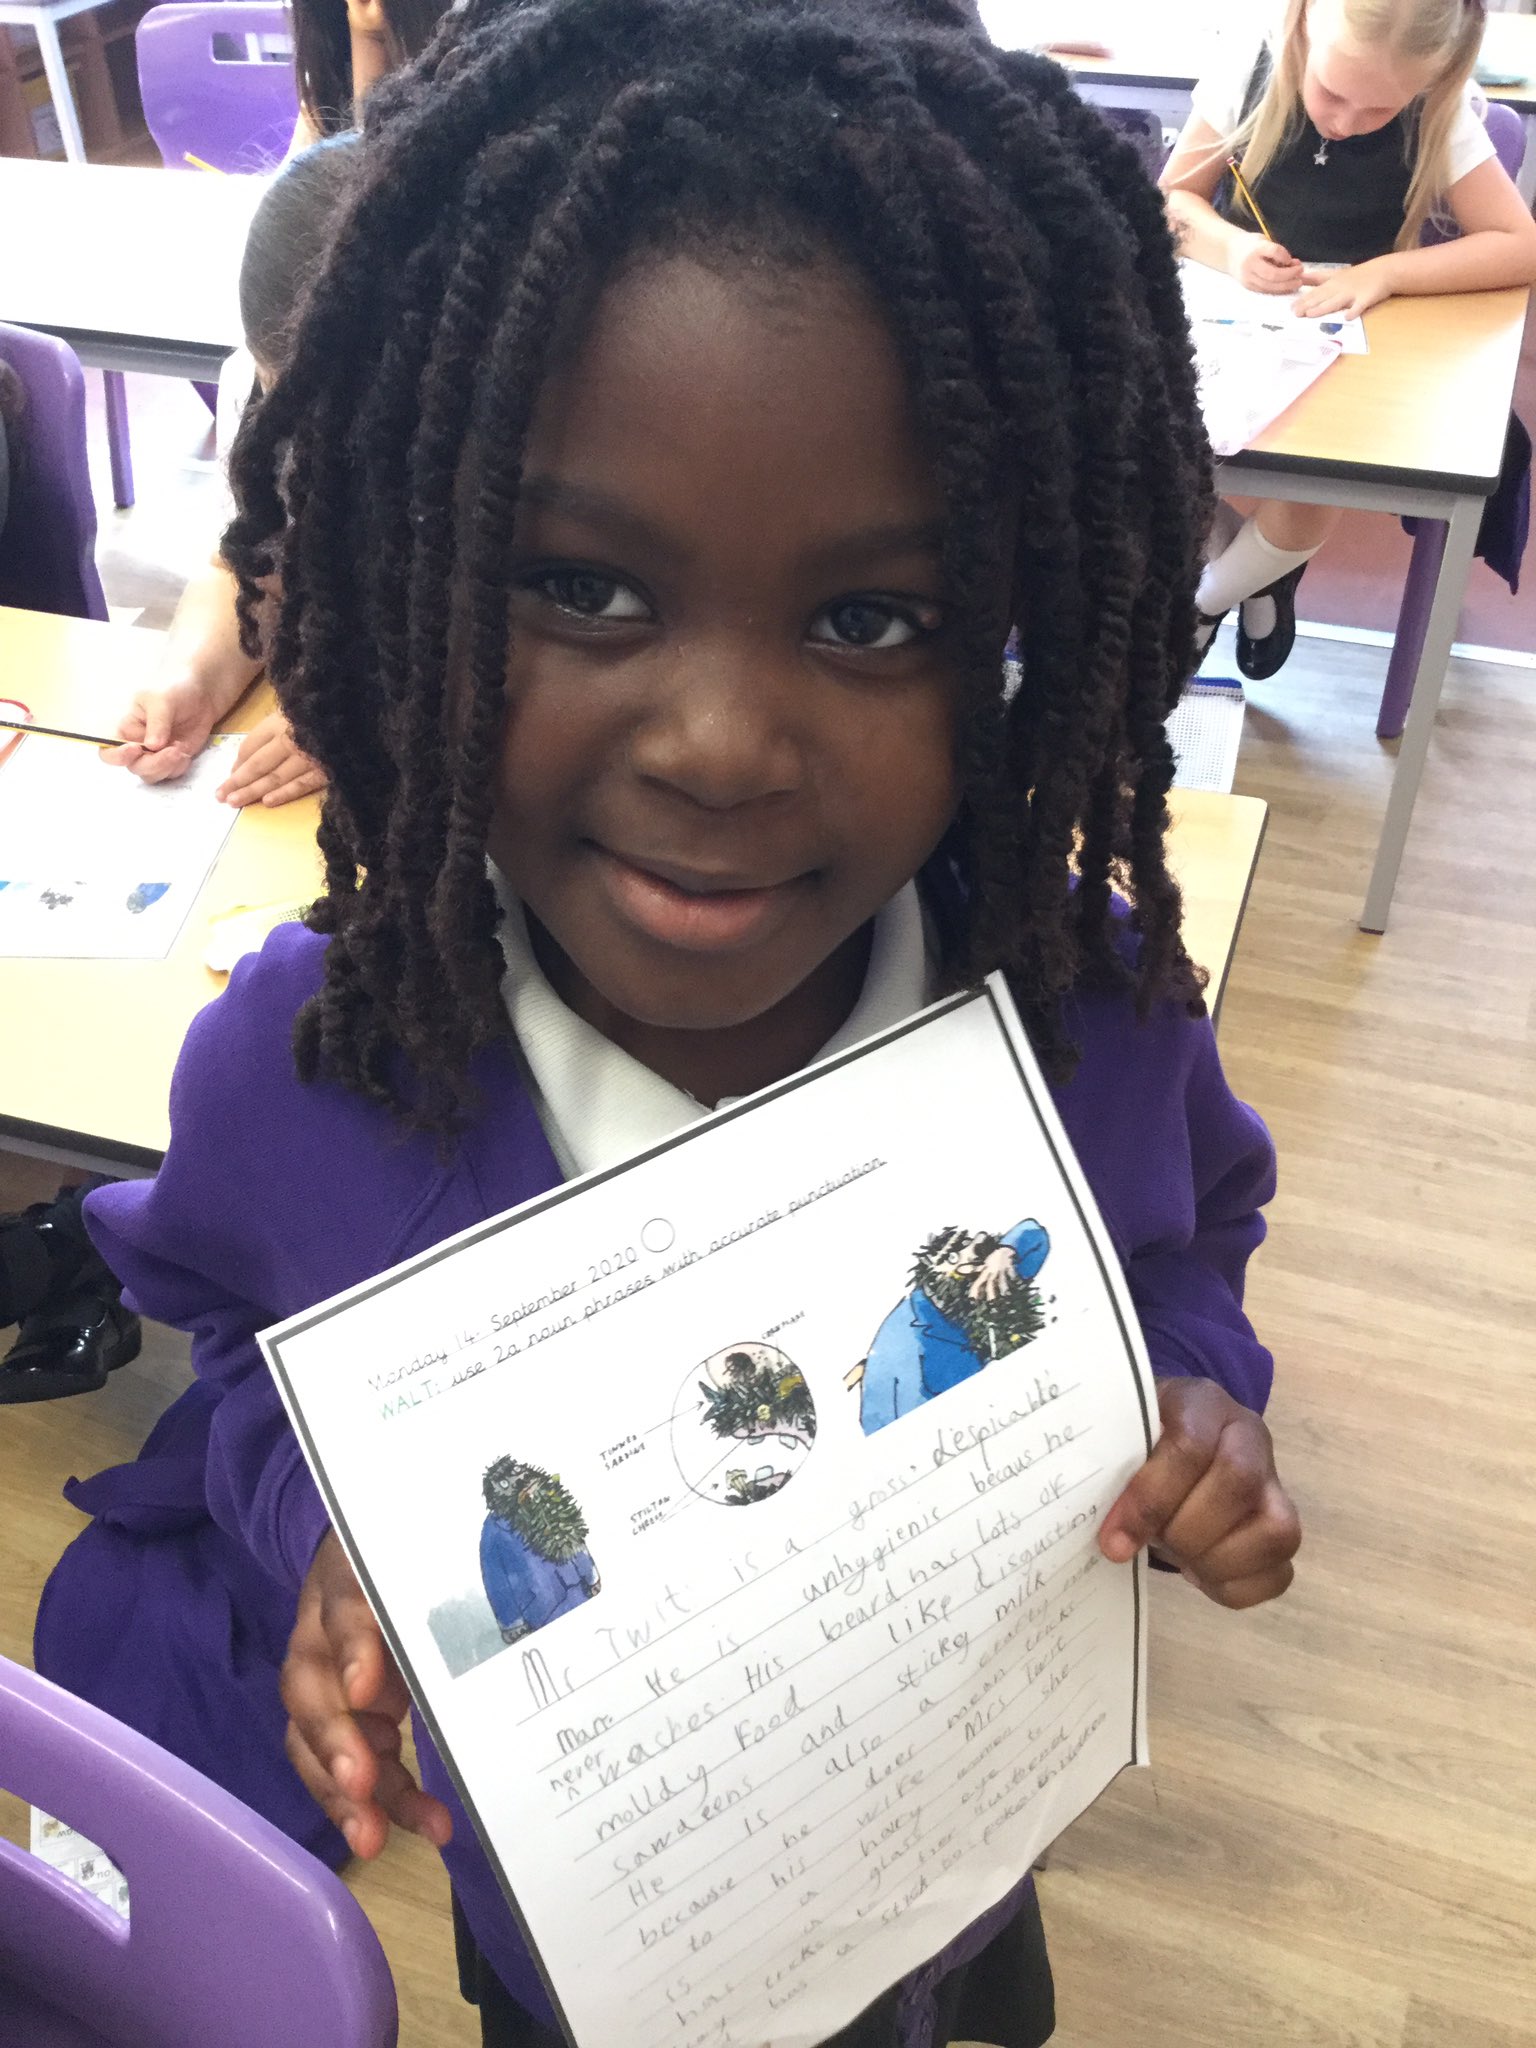 Monday 14. September 2020
WALT: use 2a noun phrases with accurate punctuation
TINNED
SARDINE
CORNFLAKE
STILTON
CHEESE
Mr Twit. is a gross. despicable
man. He is unhygienic becaus he
never
^ washes. His beard has lots of
molldy Food like disgusting
sawdeens and sticky milk.
He is also a crafty man
because he does mean tricks
to his wife Mrs Twit
is a hary women she
has a glass eye to